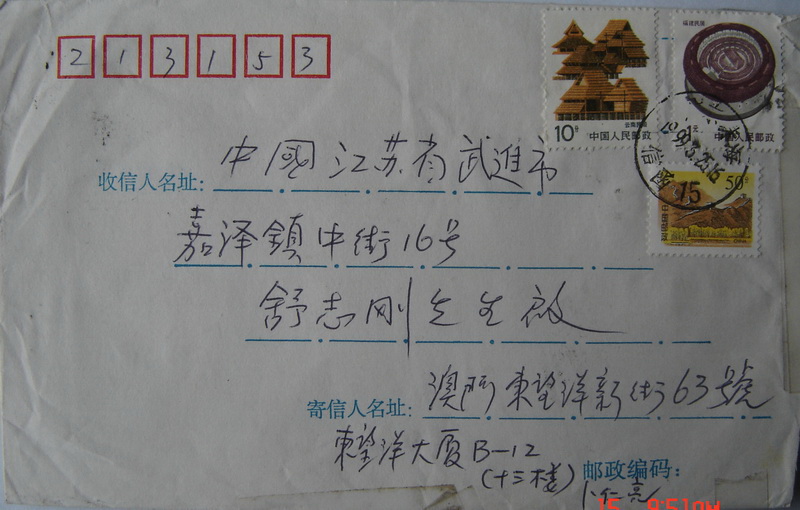 213153
10分
云南民居
中国人民邮政
福建民居
1元
中国人民邮政
50分
收信人名址：中國江苏省武進市
嘉泽鎮中街16号
舒志刚先生啟
寄信人名址：澳门東望洋新街63號
東望洋大厦B-12
(十三楼)
邮政编码：
卜仁亮